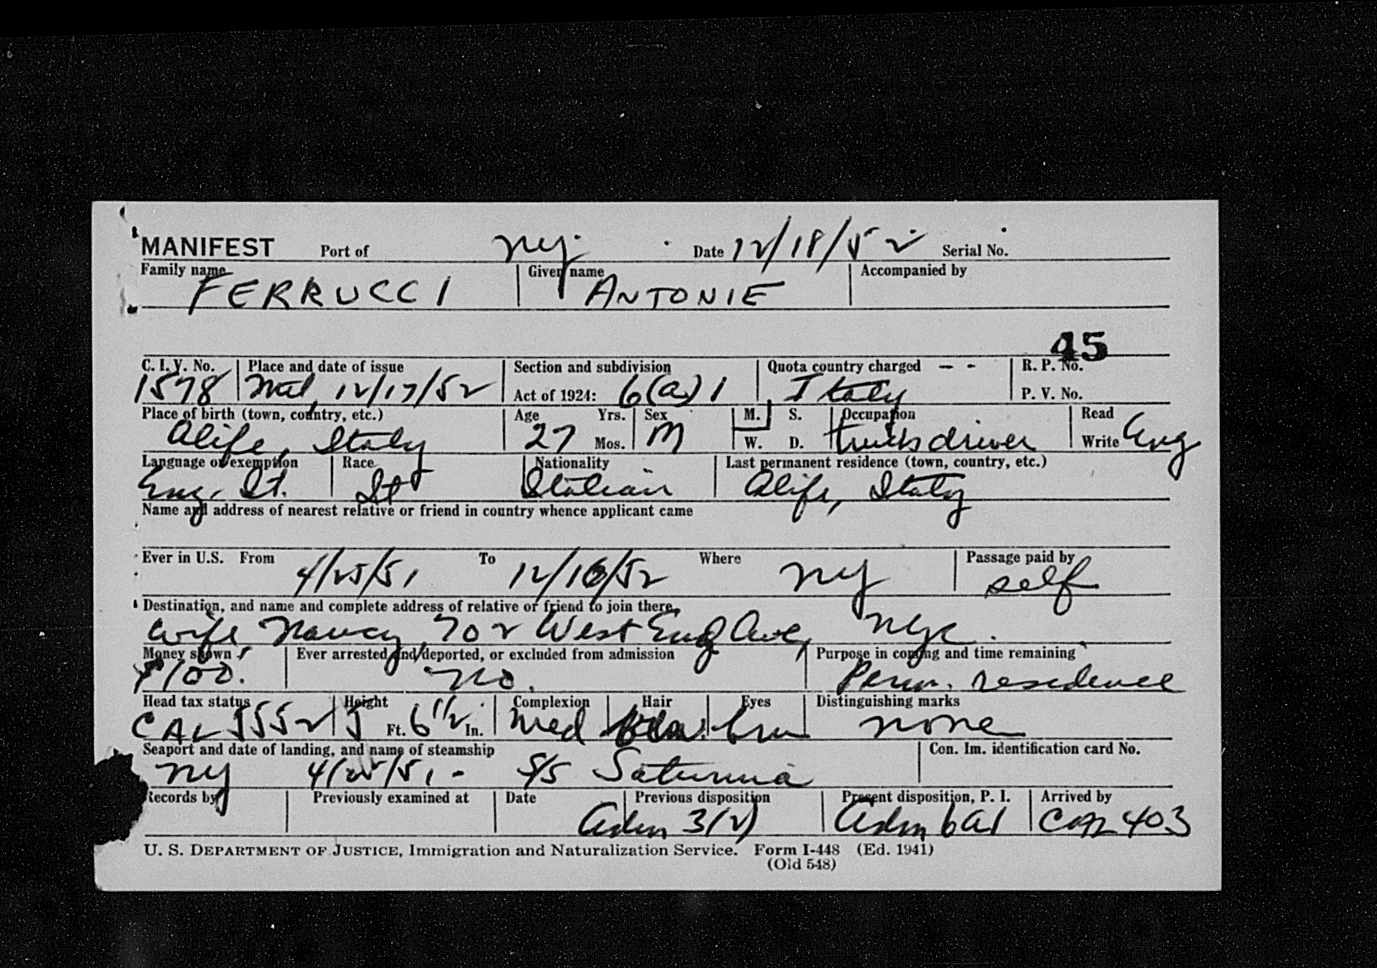 MANIFEST Port of NY. Date 12/18/52 Serial No.
Family name Given name Accompanied by
FERRUCCI ANTONIE
45
C. I. V. No. Place and date of issue Section and subdivision Quota country charged — - R. P. No.
1578 Mtl, 12/17/52 Act of 1924: 6(a) 1 Italy P. V. No.
Place of birth (town, country, etc.) Age Yrs. Sex M. S. Occupation Read
Alife, Italy 27 Mos. M W. D. truckdriver Write Eng
Language or exemption Race Nationality Last permanent residence (town, country, etc.)
Eng. It. It Italian Alife, Italy
Name and address of nearest relative or friend in country whence applicant came
Ever in U.S. From 4/25/51 To 12/16/52 Where NY Passage paid by
self
Destination, and name and complete address of relative or friend to join there
wife Nancy, 702 West End Ave, NYC.
Money shown Ever arrested and/deported, or excluded from admission Purpose in coming and time remaining
$100. no. Perm. residence
Head tax status Height Complexion Hair Eyes Distinguishing marks
CAL 5552 5 Ft. 6 1/2 In. med brn none
Seaport and date of landing, and name of steamship Con. Im. identification card No.
NY 4/25/51 - S/S Saturnia
Records by Previously examined at Date Previous disposition Present disposition, P. I. Arrived by
Adm 3(2) Adm 6a1 CAL 403
U. S. DEPARTMENT OF JUSTICE, Immigration and Naturalization Service. Form I-448 (Ed. 1941)
(Old 548)